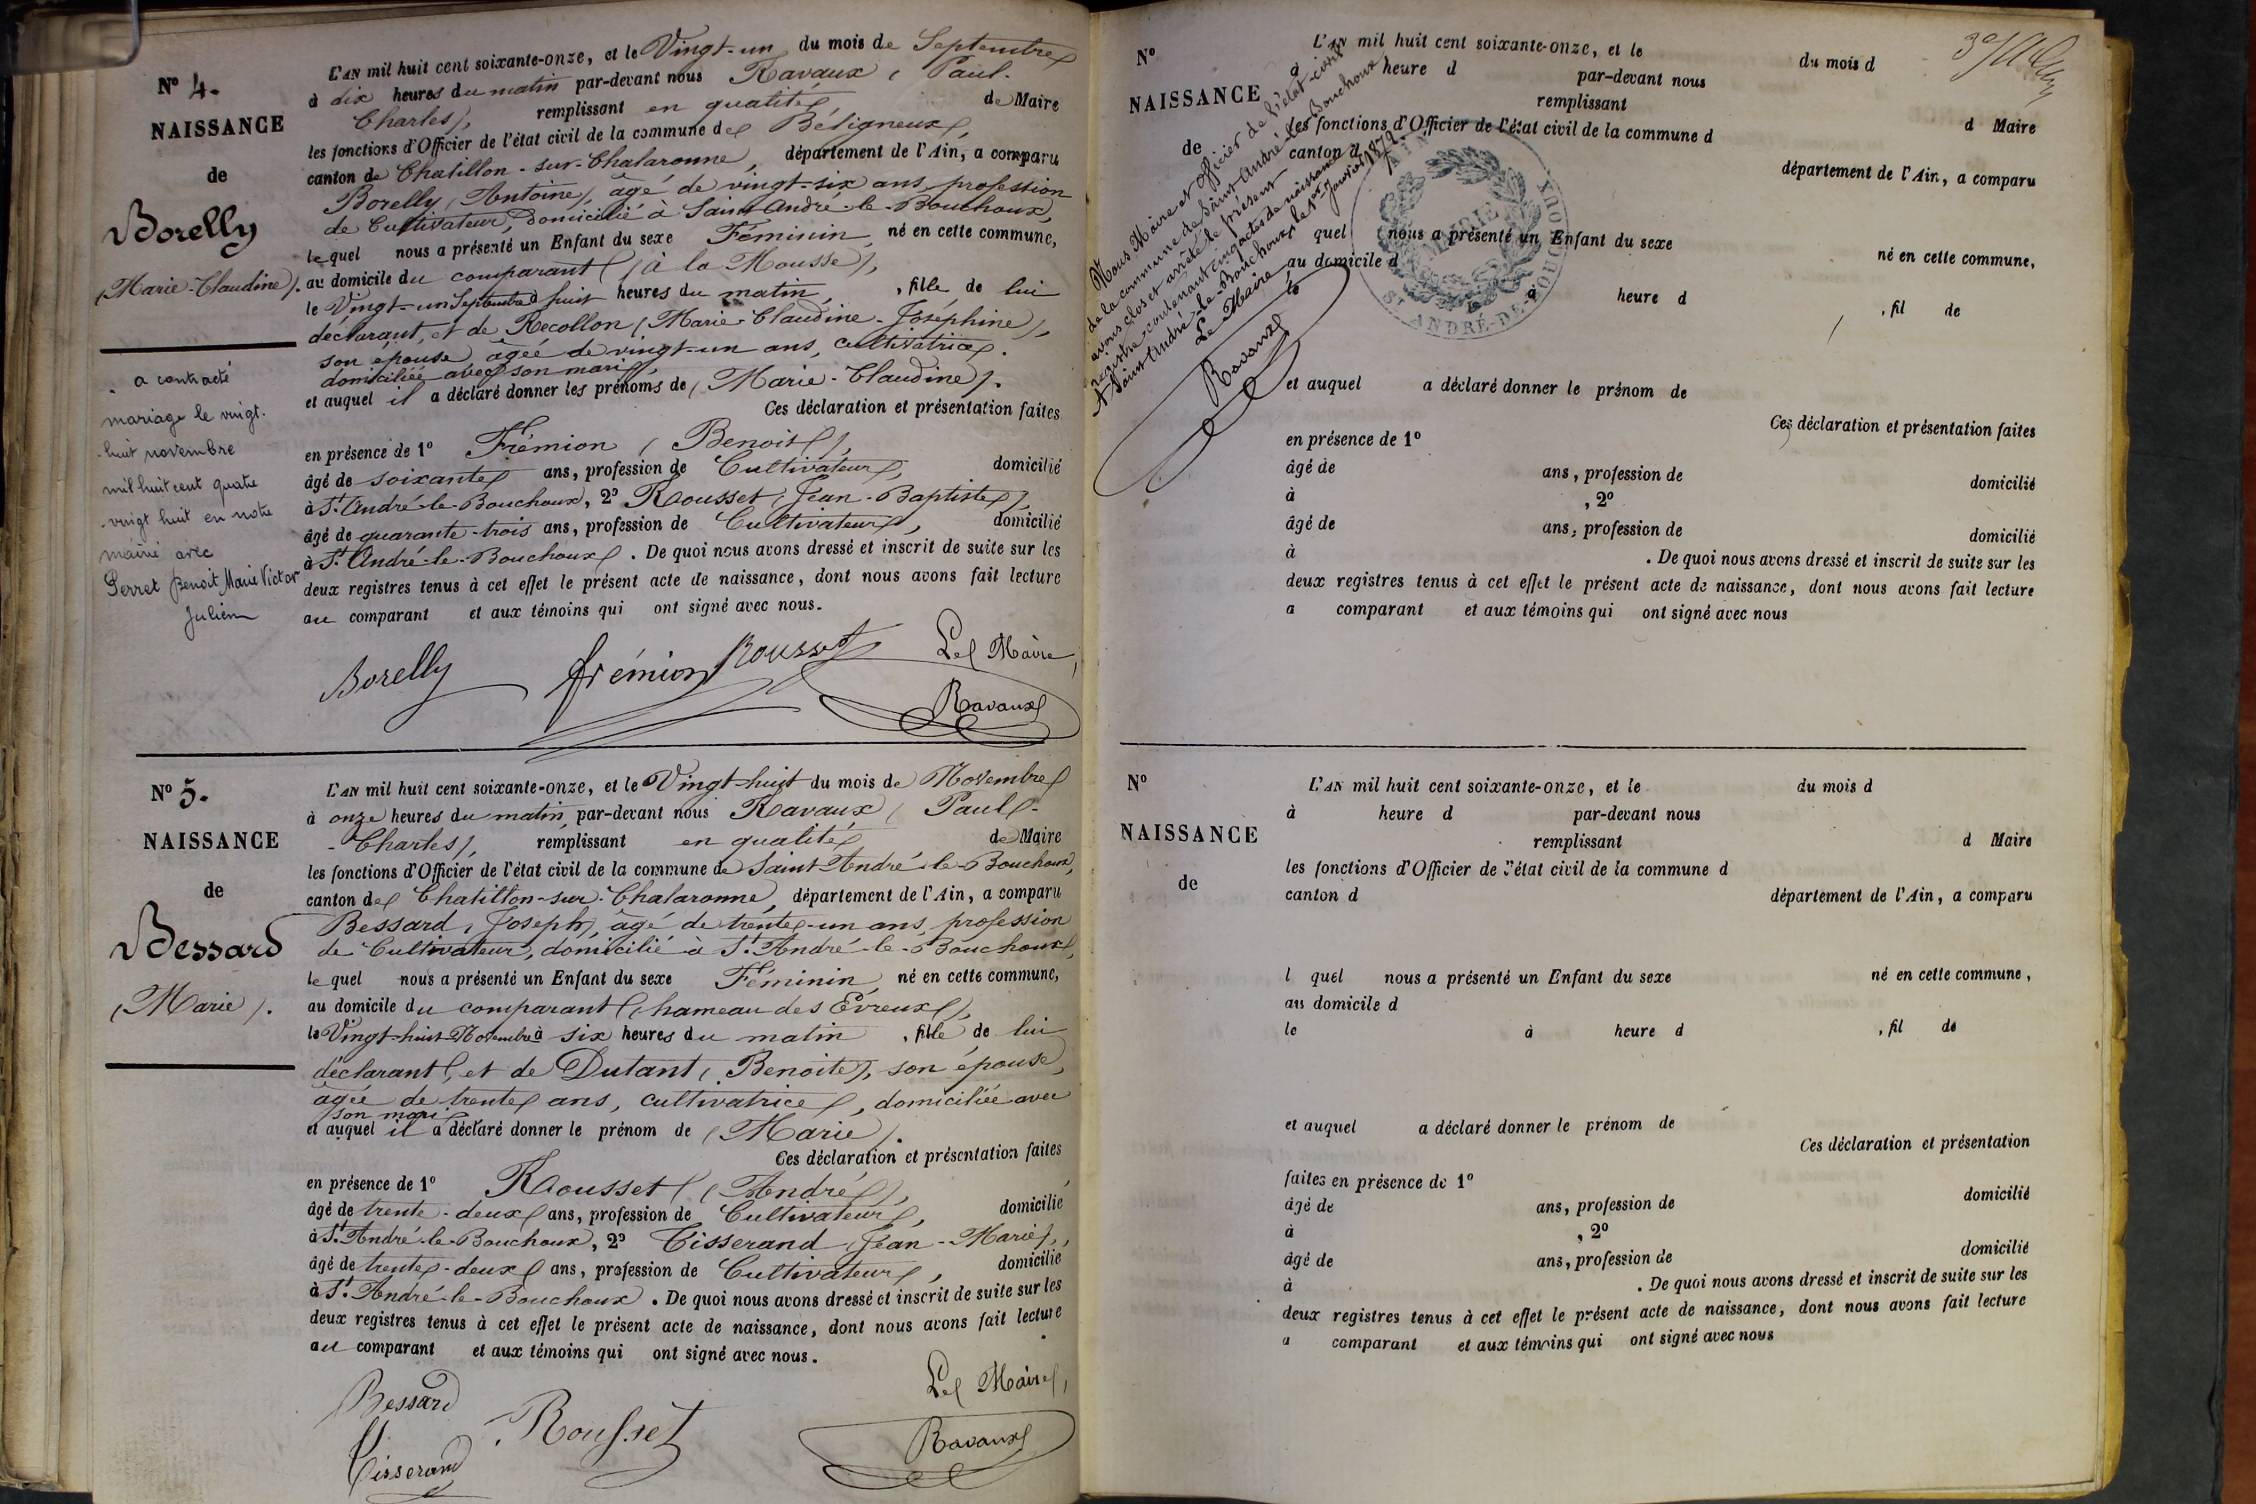 Nº 4.
NAISSANCE
de
Borelly
(Marie-Claudine).
a contracté
mariage le vingt-
-huit novembre
mil huit cent quatre
-vingt huit en notre
mairie avec
Perret Benoit Marie Victor
Julien
L'AN mil huit cent soixante-onze, et le Vingt-un du mois de Septembre
à dix heures du matin par-devant nous Ravaux (Paul-
Charles), remplissant en qualité de Maire
les fonctions d'Officier de l'état civil de la commune de Béligneux,
canton de Chatillon-sur-Chalaronne, département de l'Ain, a comparu
Borelly (Antoine), âgé de vingt-six ans, profession
de Cultivateur, domicilié à Saint André-le-Bouchoux,
lequel nous a présenté un Enfant du sexe Féminin, né en cette commune,
au domicile du comparant (à la Mousse),
le Vingt-un Septembre à huit heures du matin, fille de lui
déclarant, et de Recollon (Marie-Claudine-Joséphine),
son épouse, âgée de vingt-un ans, cultivatrice,
domiciliée avec son mari,
et auquel il a déclaré donner les prénoms de (Marie-Claudine).
Ces déclaration et présentation faites
en présence de 1º Frémion (Benoit),
âgé de soixante ans, profession de Cultivateur, domicilié
à St André-le-Bouchoux, 2º Rousset (Jean-Baptiste),
âgé de quarante-trois ans, profession de Cultivateur, domicilié
à St André-le-Bouchoux. De quoi nous avons dressé et inscrit de suite sur les
deux registres tenus à cet effet le présent acte de naissance, dont nous avons fait lecture
au comparant et aux témoins qui ont signé avec nous.
Borelly frémion Rousset Le Maire,
Ravaux
Nº 5.
NAISSANCE
de
Bessard
(Marie).
L'AN mil huit cent soixante-onze, et le Vingt-huit du mois de Novembre
à onze heures du matin, par-devant nous Ravaux (Paul-
-Charles), remplissant en qualité de Maire
les fonctions d'Officier de l'état civil de la commune de Saint André-le-Bouchoux,
canton de Chatillon-sur-Chalaronne, département de l'Ain, a comparu
Bessard (Joseph), âgé de trente-un ans, profession
de Cultivateur, domicilié à St André-le-Bouchoux,
lequel nous a présenté un Enfant du sexe Féminin, né en cette commune,
au domicile du comparant (hameau des Evreux),
le Vingt-huit Novembre à six heures du matin, fille de lui
déclarant, et de Dutant (Benoite), son épouse,
âgée de trente ans, cultivatrice, domiciliée avec
son mari
et auquel il a déclaré donner le prénom de (Marie).
Ces déclaration et présentation faites
en présence de 1º Rousset (André),
âgé de trente-deux ans, profession de Cultivateur, domicilié
à St André-le-Bouchoux, 2º Tisserand (Jean-Marie),
âgé de trente-deux ans, profession de Cultivateur, domicilié
à St André-le-Bouchoux. De quoi nous avons dressé et inscrit de suite sur les
deux registres tenus à cet effet le présent acte de naissance, dont nous avons fait lecture
au comparant et aux témoins qui ont signé avec nous.
Bessard Rousset Le Maire,
Tisserand Ravaux
Nº
NAISSANCE
de
Nous Maire et Officier de l'état-civil
de la commune de Saint André-le-Bouchoux
avons clos et arrêté le présent
registre contenant cinq actes de naissance
A Saint André-le-Bouchoux, le 1er Janvier 1872.
Le Maire
Ravaux
MAIRIE
AIN
ST ANDRÉ-DE-BOUCHOUX
L'AN mil huit cent soixante-onze, et le du mois d
à heure d par-devant nous
remplissant d Maire
les fonctions d'Officier de l'état civil de la commune d
canton d département de l'Ain, a comparu
quel nous a présenté un Enfant du sexe né en cette commune,
au domicile d
le à heure d , fil de
et auquel a déclaré donner le prénom de
Ces déclaration et présentation faites
en présence de 1º
âgé de ans, profession de domicilié
à , 2º
âgé de ans, profession de domicilié
à . De quoi nous avons dressé et inscrit de suite sur les
deux registres tenus à cet effet le présent acte de naissance, dont nous avons fait lecture
a comparant et aux témoins qui ont signé avec nous
Nº
NAISSANCE
de
L'AN mil huit cent soixante-onze, et le du mois d
à heure d par-devant nous
remplissant d Maire
les fonctions d'Officier de l'état civil de la commune d
canton d département de l'Ain, a comparu
l quel nous a présenté un Enfant du sexe né en cette commune,
au domicile d
le à heure d , fil de
et auquel a déclaré donner le prénom de
Ces déclaration et présentation
faites en présence de 1º
âgé de ans, profession de domicilié
à , 2º
âgé de ans, profession de domicilié
à . De quoi nous avons dressé et inscrit de suite sur les
deux registres tenus à cet effet le présent acte de naissance, dont nous avons fait lecture
a comparant et aux témoins qui ont signé avec nous